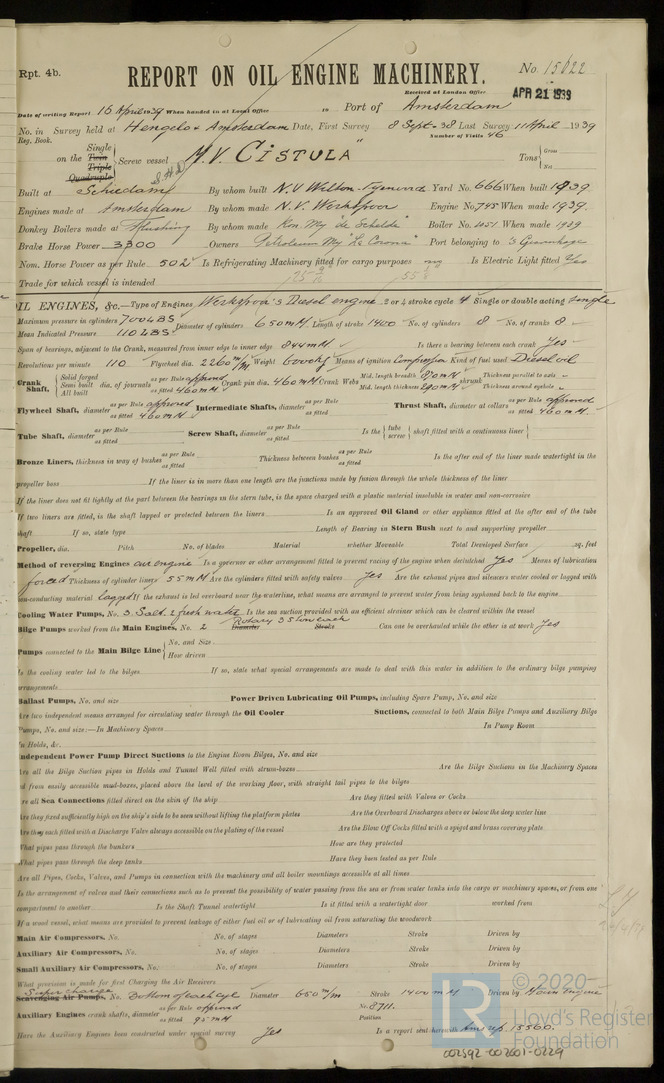 Rpt. 4b.
REPORT ON OIL ENGINE MACHINERY.
No. 15022
Received at London Office APR 21 1939
Date of writing Report 16 April 1939 When handed in at Local Office 19 Port of Amsterdam
No. in Survey held at Hengelo & Amsterdam Date, First Survey 8 Sept - 38 Last Survey 11 April 1939
Reg. Book. Number of Visits 46
on the Single Twin Triple Quadruple Screw vessel M.V. "CISTULA" Tons Gross Net
Built at Schiedam By whom built N.V. Wilton-Fijenoord Yard No. 666 When built 1939
Engines made at Amsterdam By whom made N.V. Werkspoor Engine No. 745 When made 1939
Donkey Boilers made at Flushing By whom made Kon. My "de Schelde" Boiler No. 451 When made 1939
Brake Horse Power 3300 Owners Petroleum My "La Corona" Port belonging to 's Gravenhage
Nom. Horse Power as per Rule 502 Is Refrigerating Machinery fitted for cargo purposes no Is Electric Light fitted Yes
Trade for which vessel is intended
OIL ENGINES, &c.—Type of Engines Werkspoor's Diesel engine 2 or 4 stroke cycle 4 Single or double acting single
Maximum pressure in cylinders 700 LBS Diameter of cylinders 650 m/m Length of stroke 1400 No. of cylinders 8 No. of cranks 8
Mean Indicated Pressure 110 LBS
Span of bearings, adjacent to the Crank, measured from inner edge to inner edge 844 m/m Is there a bearing between each crank Yes
Revolutions per minute 110 Flywheel dia. 2260 m/m Weight 6000 kg Means of ignition Compression Kind of fuel used Diesel oil
Crank Shaft, Solid forged Semi built All built dia. of journals as per Rule approved as fitted 460 m/m Crank pin dia. 460 m/m Crank Webs Mid. length breadth Mid. length thickness shrunk Thickness parallel to axis Thickness around eyehole
Flywheel Shaft, diameter as per Rule approved as fitted 460 m/m Intermediate Shafts, diameter as per Rule as fitted Thrust Shaft, diameter at collars as per Rule approved as fitted 460 m/m
Tube Shaft, diameter as per Rule as fitted Screw Shaft, diameter as per Rule as fitted Is the tube screw shaft fitted with a continuous liner
Bronze Liners, thickness in way of bushes as per Rule as fitted Thickness between bushes as per Rule as fitted Is the after end of the liner made watertight in the
propeller boss If the liner is in more than one length are the junctions made by fusion through the whole thickness of the liner
If the liner does not fit tightly at the part between the bearings in the stern tube, is the space charged with a plastic material insoluble in water and non-corrosive
If two liners are fitted, is the shaft lapped or protected between the liners Is an approved Oil Gland or other appliance fitted at the after end of the tube
shaft If so, state type Length of Bearing in Stern Bush next to and supporting propeller
Propeller, dia. Pitch No. of blades Material whether Moveable Total Developed Surface sq. feet
Method of reversing Engines air engine Is a governor or other arrangement fitted to prevent racing of the engine when declutched Yes Means of lubrication
forced Thickness of cylinder liners 55 m/m Are the cylinders fitted with safety valves Yes Are the exhaust pipes and silencers water cooled or lagged with
non-conducting material lagged If the exhaust is led overboard near the waterline, what means are arranged to prevent water from being syphoned back to the engine
Cooling Water Pumps, No. 3 Salt. 2 fresh water Is the sea suction provided with an efficient strainer which can be cleared within the vessel
Bilge Pumps worked from the Main Engines, No. 2 Diameter Stroke Can one be overhauled while the other is at work Yes
Pumps connected to the Main Bilge Line No. and Size
How driven
Is the cooling water led to the bilges If so, state what special arrangements are made to deal with this water in addition to the ordinary bilge pumping
arrangements
Ballast Pumps, No. and size Power Driven Lubricating Oil Pumps, including Spare Pump, No. and size
Are two independent means arranged for circulating water through the Oil Cooler Suctions, connected to both Main Bilge Pumps and Auxiliary Bilge
Pumps, No. and size:—In Machinery Spaces In Pump Room
In Holds, &c.
Independent Power Pump Direct Suctions to the Engine Room Bilges, No. and size
Are all the Bilge Suction pipes in Holds and Tunnel Well fitted with strum-boxes Are the Bilge Suctions in the Machinery Spaces
led from easily accessible mud-boxes, placed above the level of the working floor, with straight tail pipes to the bilges
Are all Sea Connections fitted direct on the skin of the ship Are they fitted with Valves or Cocks
Are they fixed sufficiently high on the ship's side to be seen without lifting the platform plates Are the Overboard Discharges above or below the deep water line
Are they each fitted with a Discharge Valve always accessible on the plating of the vessel Are the Blow Off Cocks fitted with a spigot and brass covering plate
What pipes pass through the bunkers How are they protected
What pipes pass through the deep tanks Have they been tested as per Rule
Are all Pipes, Cocks, Valves, and Pumps in connection with the machinery and all boiler mountings accessible at all times
Is the arrangement of valves and their connections such as to prevent the possibility of water passing from the sea or from water tanks into the cargo or machinery spaces, or from one
compartment to another Is the Shaft Tunnel watertight Is it fitted with a watertight door worked from
If a wood vessel, what means are provided to prevent leakage of either fuel oil or of lubricating oil from saturating the woodwork
Main Air Compressors, No. No. of stages Diameters Stroke Driven by
Auxiliary Air Compressors, No. No. of stages Diameters Stroke Driven by
Small Auxiliary Air Compressors, No. No. of stages Diameters Stroke Driven by
What provision is made for first Charging the Air Receivers
Super charge
Scavenging Air Pumps, No. Bottom of each cyl Diameter 650 m/m Stroke 1400 m/m Driven by Main Engine
Auxiliary Engines crank shafts, diameter as per Rule approved as fitted 95 m/m No. 8711. Position
Have the Auxiliary Engines been constructed under special survey Yes Is a report sent herewith Ams rep. 15560.
© 2020
LR
Lloyd's Register
Foundation
002592-002601-0229